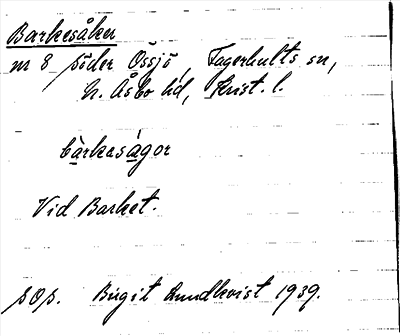 Barkesåker
nr 8 söder Össjö, Fagerhults sn,
N. Åsbo hd, Krist. l.
bàrkasàgor
Vid Barket.
sOs. Birgit Lundkvist 1939.